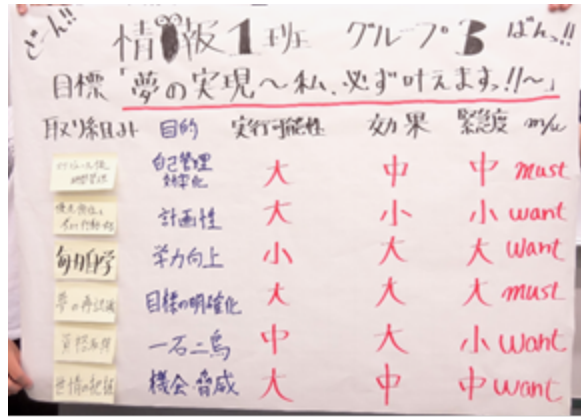 どーん!! 情報1班 グループ3 ばんっ!!
目標「夢の実現～私、必ず叶えますっ!!～」
取り組み 目的 実行可能性 効果 緊急度 m/w
自己管理 効率化 大 中 中 must
計画性 大 小 小 want
毎日自学 学力向上 小 大 大 want
夢の再認識 目標の明確化 大 大 大 must
資格取得 一石二鳥 中 大 小 want
世情の把握 機会・脅威 大 中 中 want